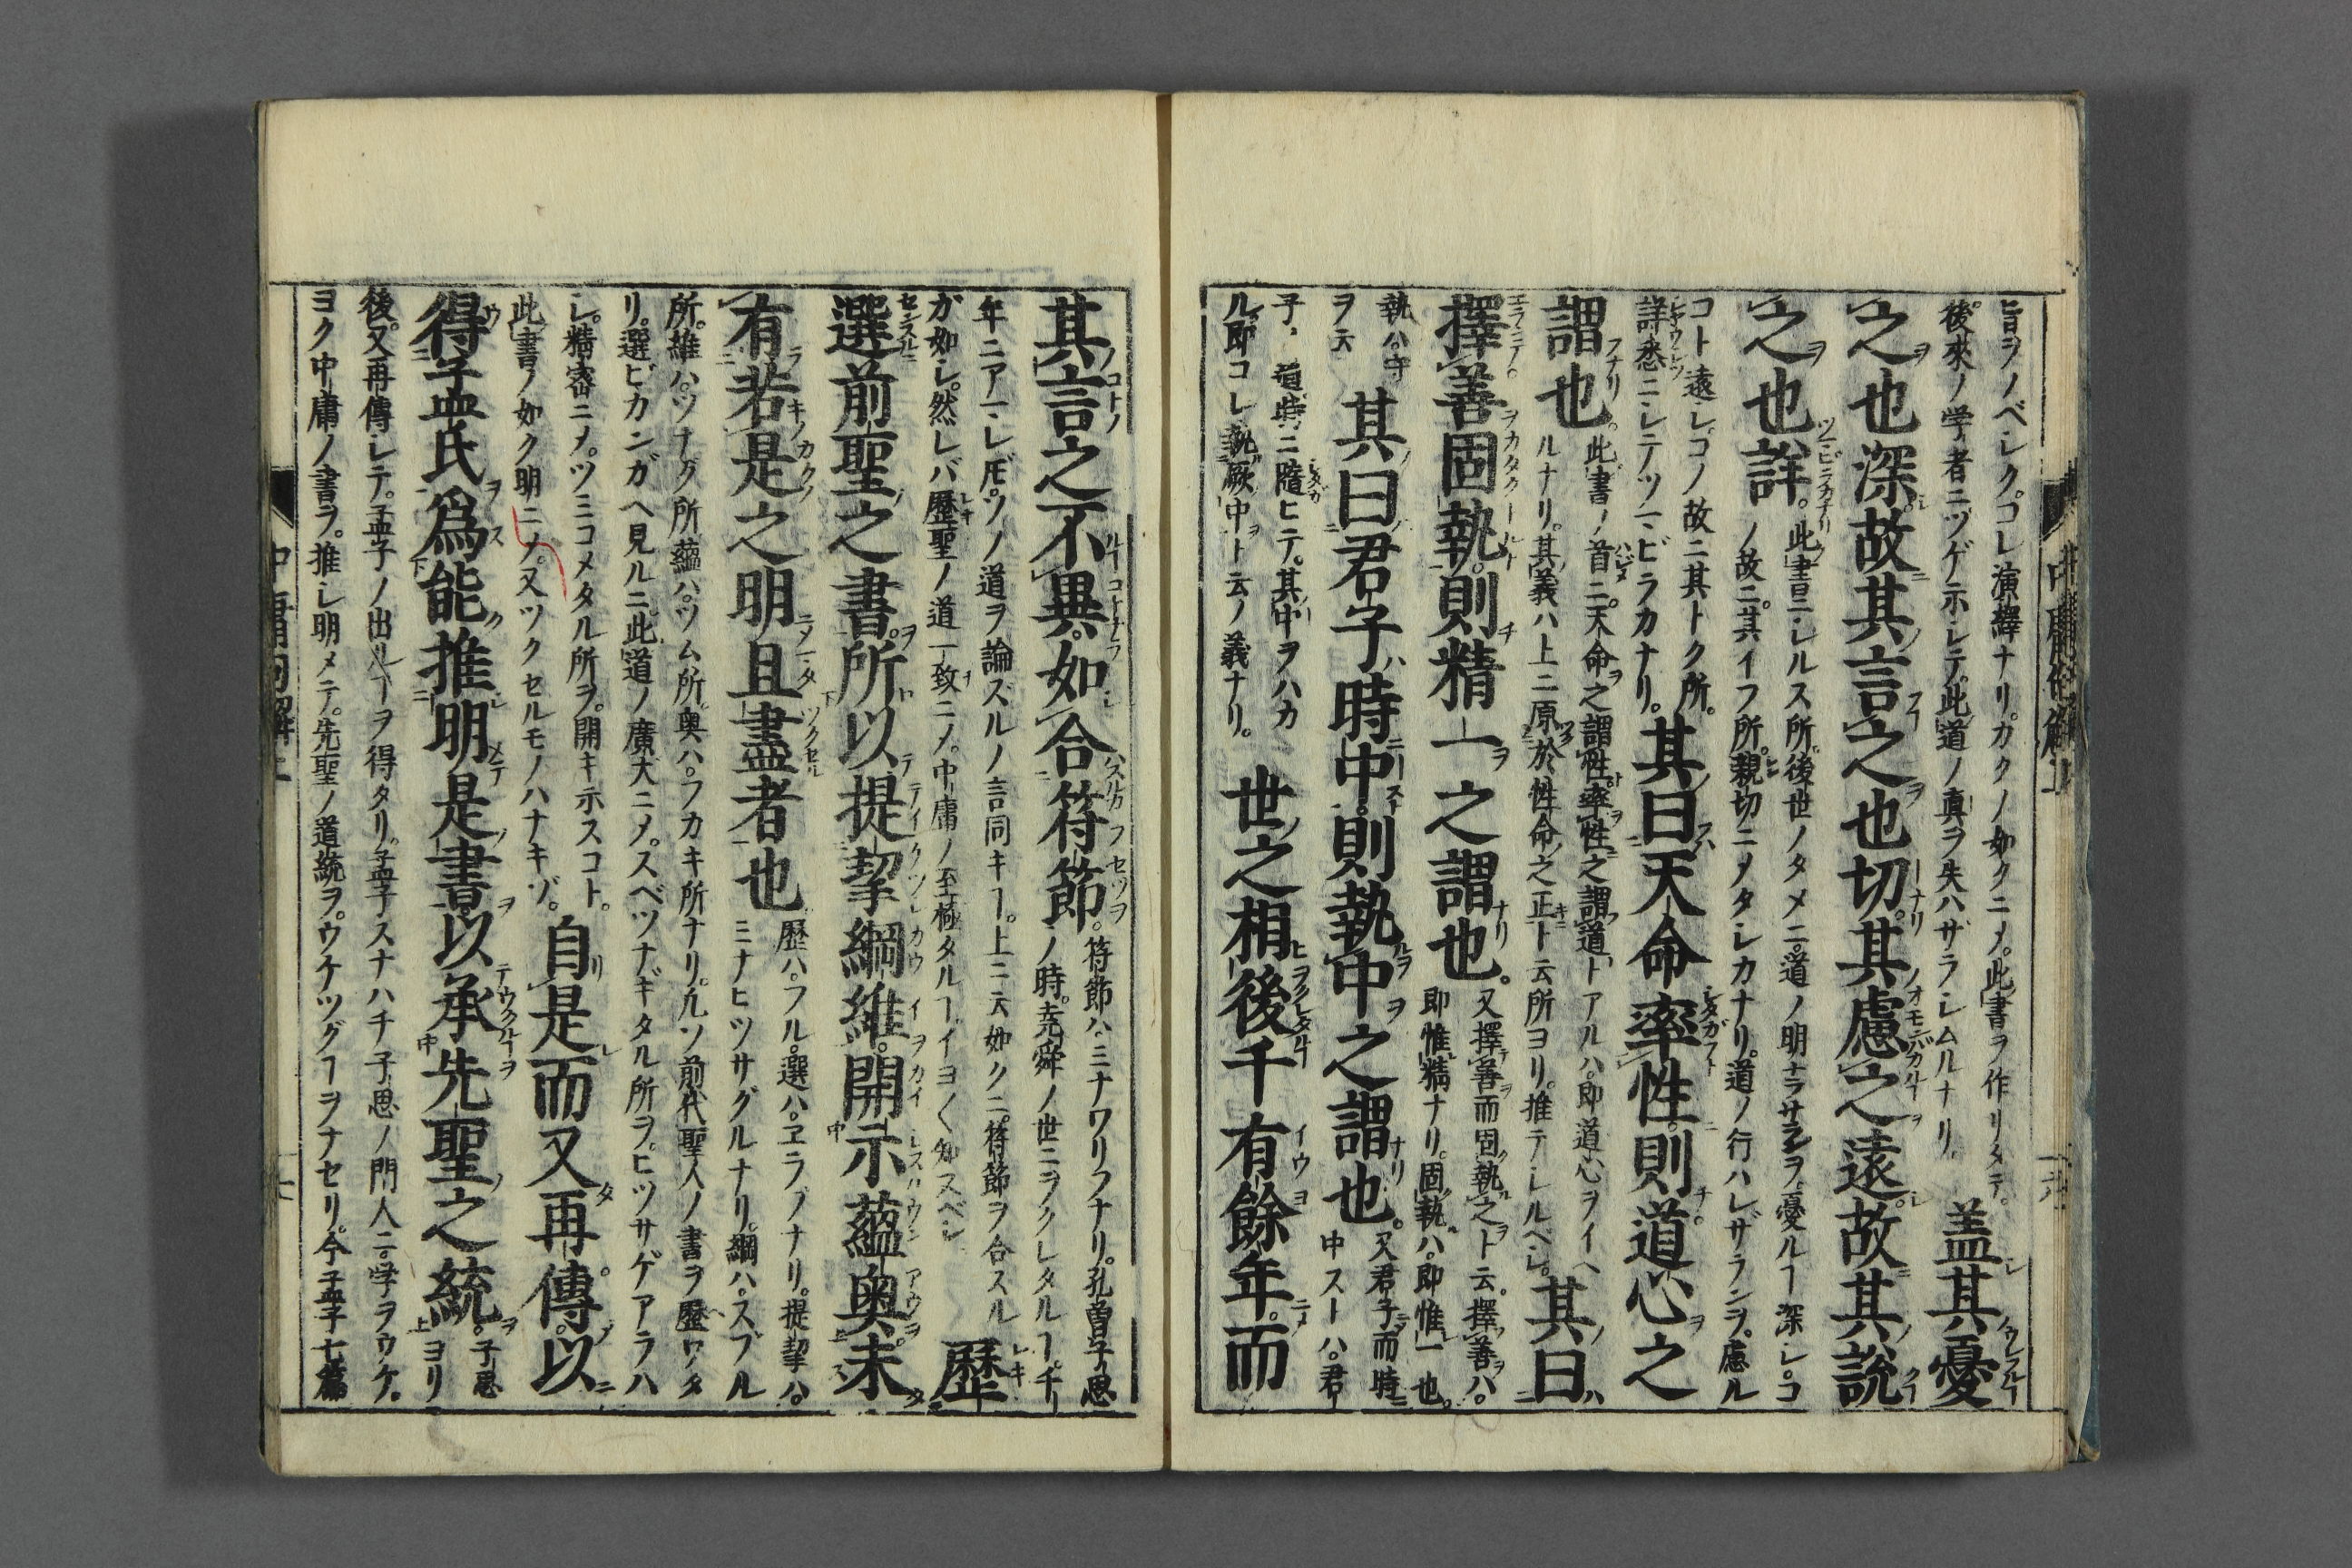 旨ヲノベシク。コレ演繹ナリ。カクノ如クニメ。此書ヲ作リタテ。
後來ノ学者ニツゲ示シテ。此道ノ真ヲ失ハザラシムルナリ。
盖其憂
之也深故其言之也切。其慮之遠。故其説
之也詳。
此書ニシルス所。後世ノタメニ。道ノ明ナラサランヲ。憂ルヿ深シ。コ
ノ故ニ。其イフ所。親切ニメタシカナリ。道ノ行ハレザランヲ。慮ル
コト遠シ。コノ故ニ其トク所。
詳悉ニシテツマビラカナリ。
其曰天命率性。則道心之
謂也。
此書ノ首ニ。天命之謂性。率性之謂道。トアルハ。即道心ヲイヘ
ルナリ。其義ハ上ニ原於性命之正ト云所ヨリ。推テシルベシ。
其曰
擇善固執。則精一之謂也。
又擇善而固執之ト云。擇善ハ。
即惟精ナリ。固執ハ。即惟一也。
執ハ守
ヲ云
其曰君子時中。則執中之謂也。
又君子而時
中ストハ。君
子、道時ニ隨ヒテ。其中ヲハカ
ル。即コレ執厥中ト云ノ義ナリ。
世之相後千有餘年。而
其言之不異。如合符節。
符節ハ。ミナワリフナリ。孔曽子思
ノ時。堯舜ノ世ニヲクレタルヿ。千
年ニアマレ𪜈。ソノ道ヲ論ズルノ言同キヿ。上ニ云如クニ。符節ヲ合スル
カ如シ。然レバ歷聖ノ道一致ニメ。中庸ノ至極タルヿ。イヨ〱知スベシ
歷
選前聖之書。所以提挈綱維。開示蘊奧。未
有若是之明且盡者也
歷ハ。フル。選ハ。ヱラブナリ。提挈ハ。
ミナヒツサグルナリ。綱ハ。スブル
所。維ハ。ツナグ所。蘊ハ。ツム所。奥ハ。フカキ所ナリ。凢ソ前代聖人ノ書ヲ歷ワタ
リ。選ビカンガヘ見ルニ。此道ノ廣大ニメ。スベツナギタル所ヲ。ヒツサゲアラハ
シ。精密ニメ。ツミコメタル所ヲ。開キ示スコト。
此書ノ如ク明ニメ。又ツクセルモノハナキゾ。
自是而又再傳。以
得孟氏。爲能推明是書。以承先聖之統。
子思
ヨリ
後。又再傳シテ。孟子ノ出ルヿヲ得タリ。孟子スナハチ子思ノ門人ニ。学ヲウケ。
ヨク中庸ノ書ヲ。推シ明メテ。先聖ノ道統ヲ。ウケツグヿヲナセリ。今孟子七篇